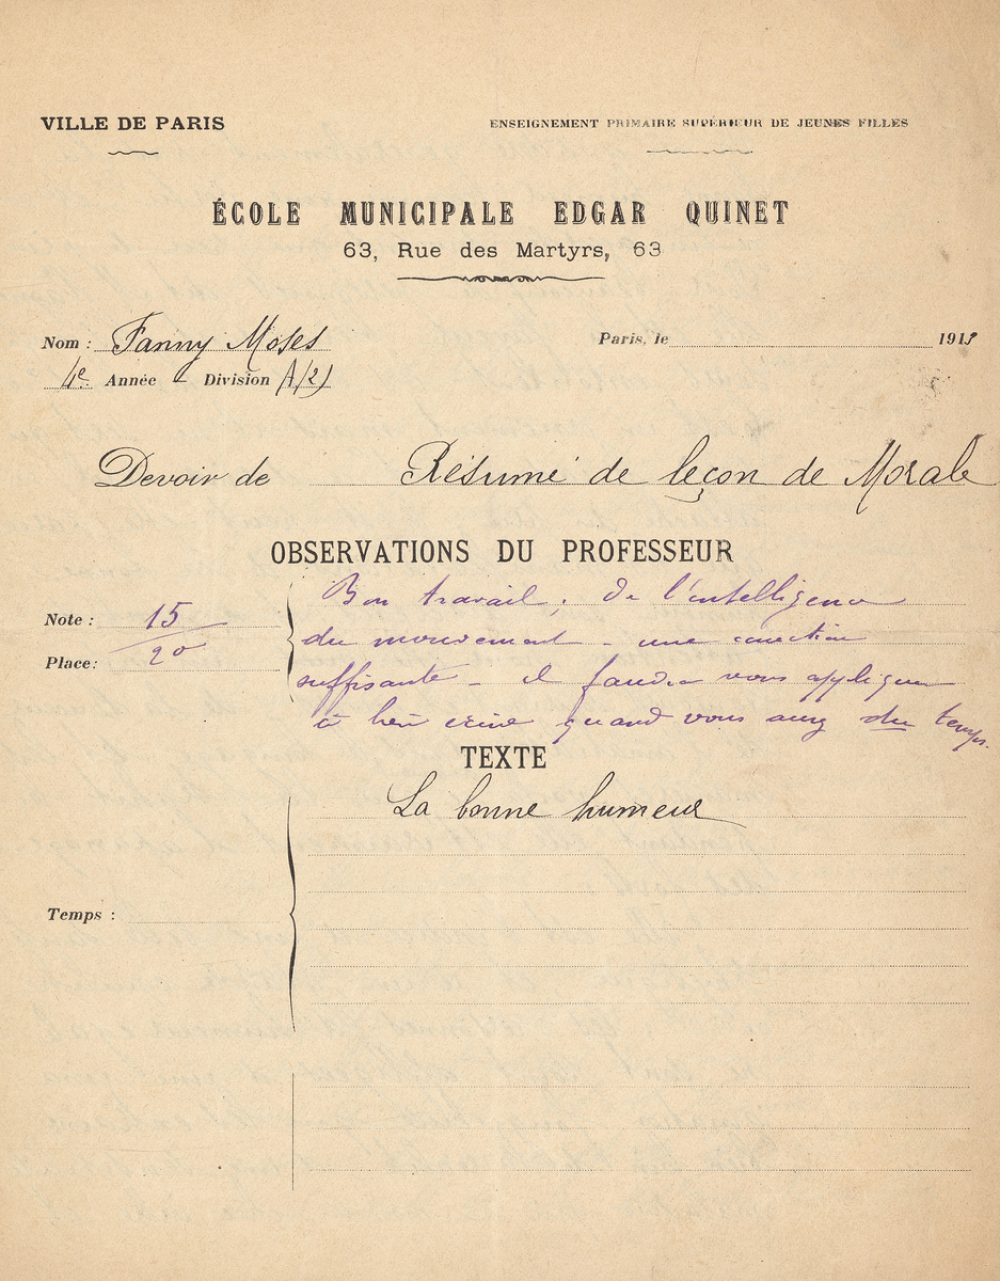 VILLE DE PARIS
ENSEIGNEMENT PRIMAIRE SUPÉRIEUR DE JEUNES FILLES
ÉCOLE MUNICIPALE EDGAR QUINET
63, Rue des Martyrs, 63
Nom : Fanny Moses
Paris, le 191
4e Année - Division A(2)
Devoir de Résumé de leçon de Morale
OBSERVATIONS DU PROFESSEUR
Bon travail, de l'intelligence
du mouvement - une correction
suffisante - il faudra vous appliquer
à bien écrire quand vous aurez du temps.
Note : 15
Place : 20
TEXTE
La bonne humeur
Temps :